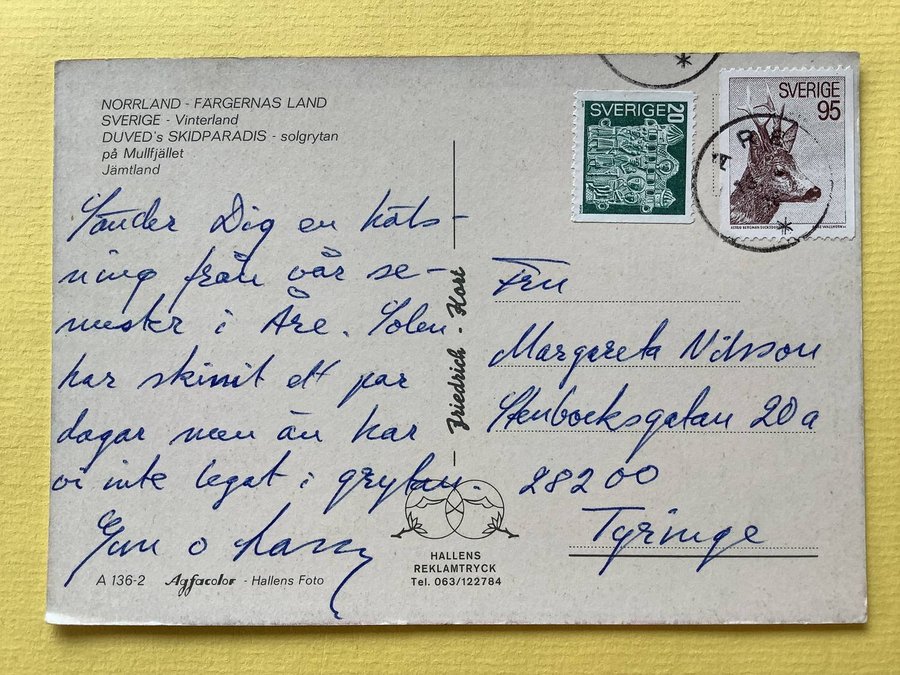 NORRLAND - FÄRGERNAS LAND
SVERIGE - Vinterland
DUVED's SKIDPARADIS - solgrytan
på Mullfjället
Jämtland
Sänder Dig en häls-
ning från vår se-
mester i Åre. Solen
har skinit ett par
dagar men än har
vi inte legat i grytan.
Gun o Lasse
Friedrich - Kort
SVERIGE 20
SVERIGE
95
ÅRE
Fru
Margareta Nilsson
Stenbocksgatan 20a
282 00
Tyringe
HALLENS
REKLAMTRYCK
Tel. 063/122784
A 136-2 Agfacolor - Hallens Foto